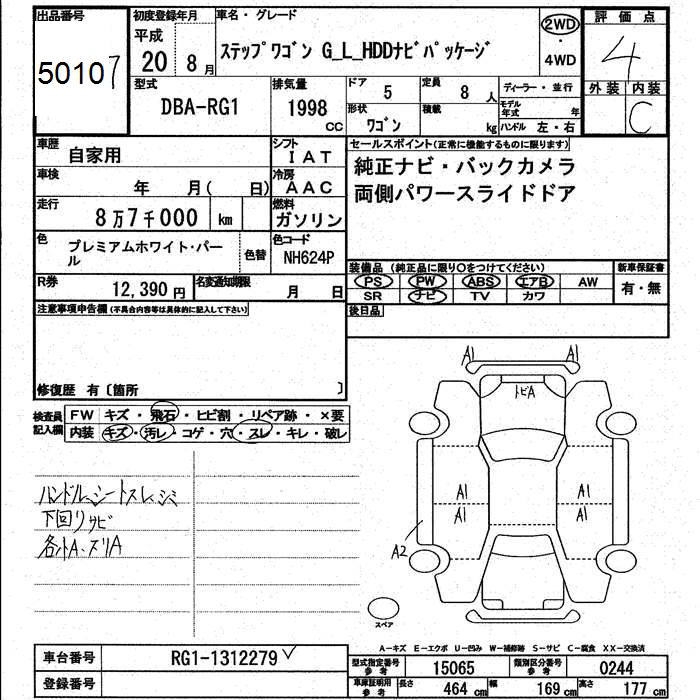 出品番号
50107
初度登録年月
平成
20年 8月
車名・グレード
ステップワゴン G_L_HDDナビパッケージ
2WD
・
4WD
評価点
4
外装 内装
C
型式
DBA-RG1
排気量
1998
CC
ドア 5
定員 8 人
ディーラー・並行
モデル年式 年
形状 ワゴン
積載 kg
ハンドル 左・右
車歴 自家用
シフト IAT
車検 年 月( 日)
冷房 AAC
走行 8万7千000 km
燃料 ガソリン
色 プレミアムホワイト・パール
色替
色コード NH624P
R券 12,390 円
名変通知期限 月 日
セールスポイント(正常に機能するものに限ります)
純正ナビ・バックカメラ
両側パワースライドドア
装備品 (純正品に限り〇をつけてください)
新車保証書
PS PW ABS エアB AW
SR ナビ TV カワ
有・無
後日品
注意事項申告欄(不具合内容等は具体的に記入して下さい)
修復歴 有〔箇所 〕
検査員記入欄
FW キズ・飛石・ヒビ割・リペア跡・×要
内装 キズ・汚レ・コゲ・穴・スレ・キレ・破レ
ハンドル、シートスレ、シミ
下回りサビ
各小A・スリA
A1 A1
トビA
A1 A1
A1 A1
A2
スペア
A－キズ E－エクボ U－凹み W－補修跡 S－サビ C－腐食 XX－交換済
車台番号 RG1-1312279
登録番号
型式指定番号参考 15065
類別区分番号参考 0244
車庫証明用参考 長さ 464 cm 幅 169 cm 高さ 177 cm